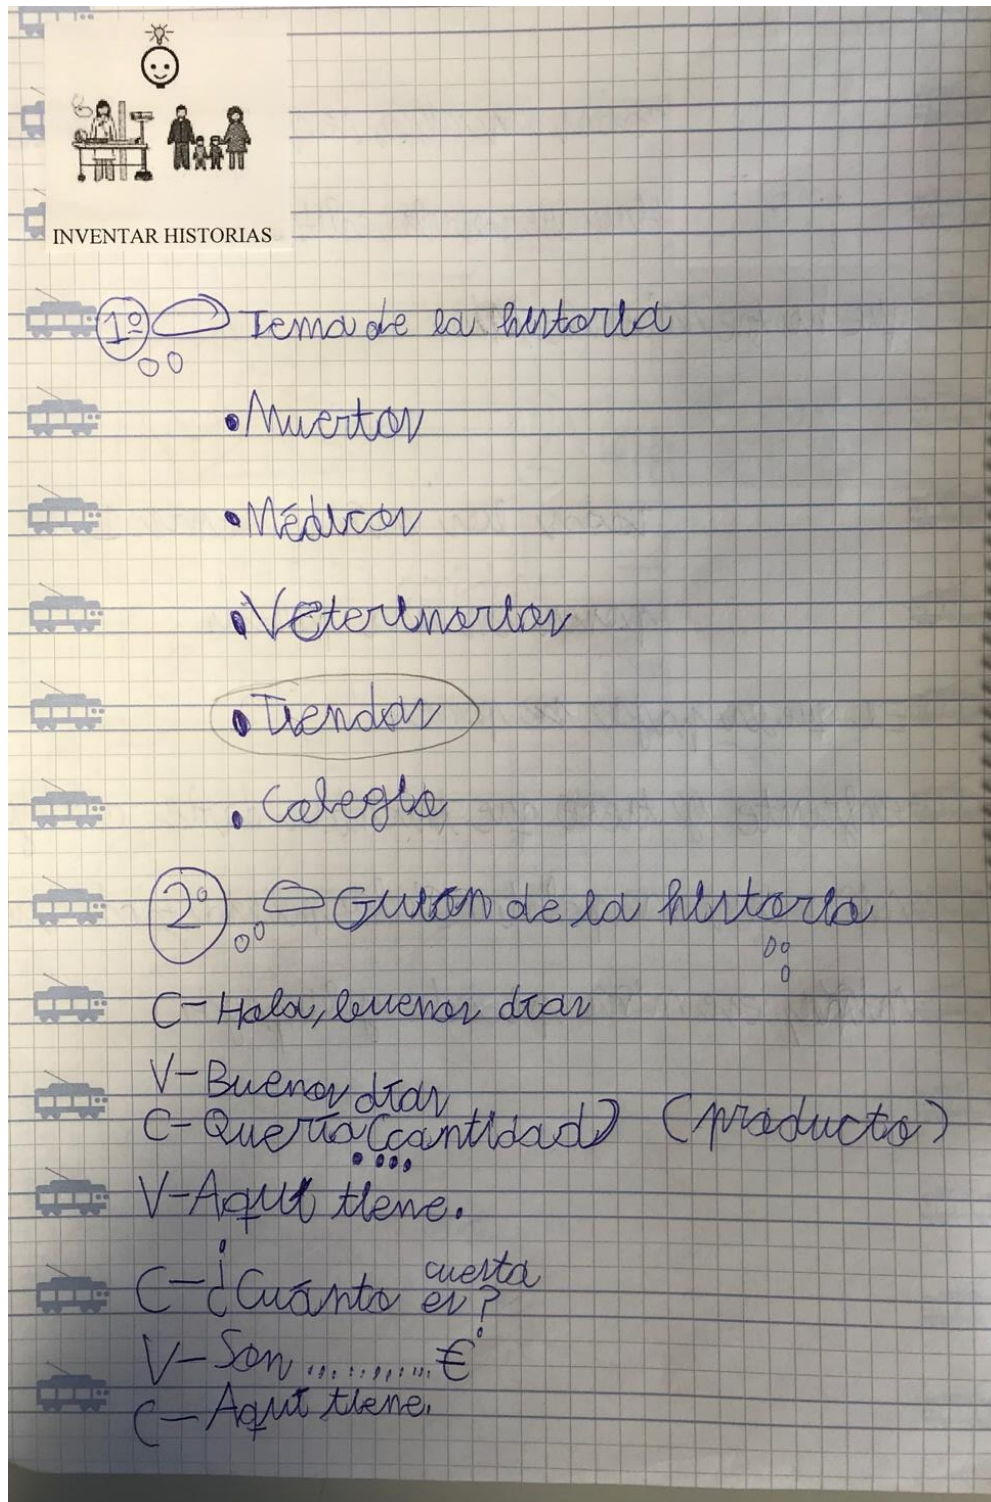 INVENTAR HISTORIAS
1º Tema de la historia
• Muertos
• Médicos
• Veterinarios
• Tiendas
• Colegio
2º Guión de la historia
C- Hola, buenos días
V- Buenos días
C- Quería (cantidad) (producto)
V- Aquí tiene.
C- ¿Cuánto cuesta es?
V- Son ............ €
C- Aquí tiene.